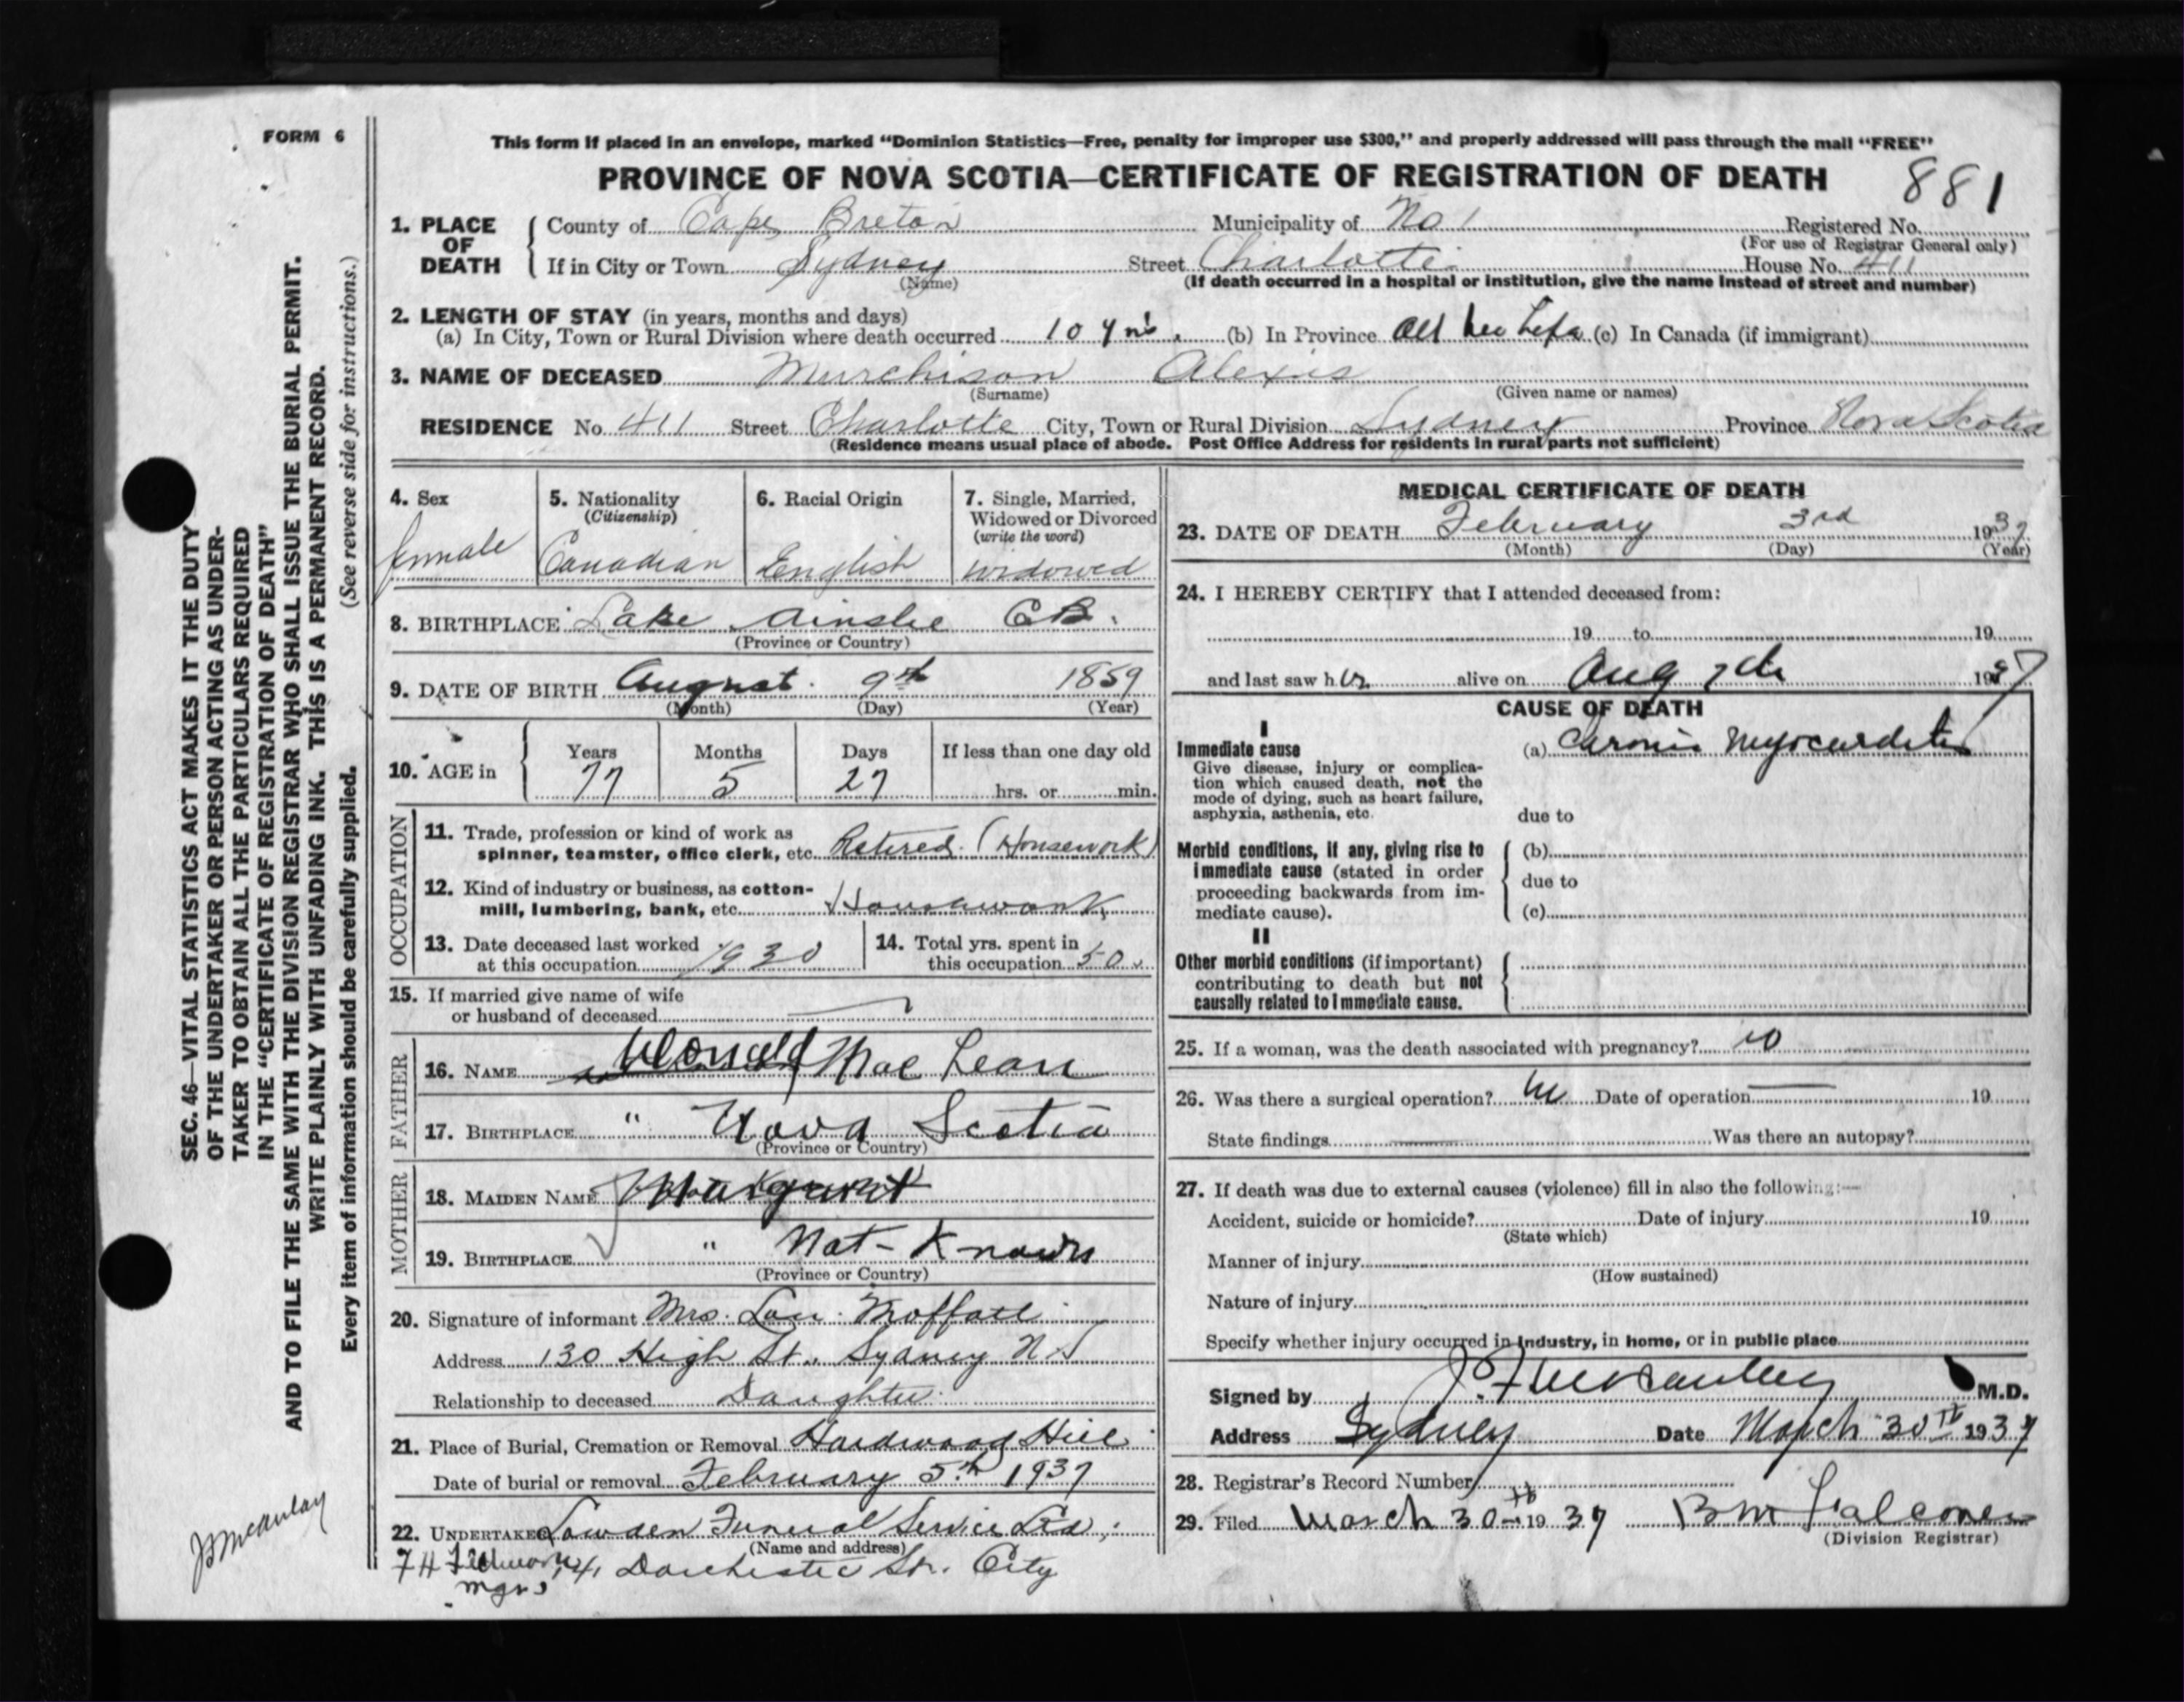 FORM 6
This form if placed in an envelope, marked “Dominion Statistics—Free, penalty for improper use $300,” and properly addressed will pass through the mail “FREE”
PROVINCE OF NOVA SCOTIA—CERTIFICATE OF REGISTRATION OF DEATH
881
1. PLACE OF DEATH
County of Cape Breton Municipality of No 1 Registered No.
(For use of Registrar General only)
If in City or Town Sydney Street Charlotte House No. 411
(Name) (If death occurred in a hospital or institution, give the name instead of street and number)
2. LENGTH OF STAY (in years, months and days)
(a) In City, Town or Rural Division where death occurred 10 yrs. (b) In Province All her Life (c) In Canada (if immigrant)
3. NAME OF DECEASED Murchison Alexis
(Surname) (Given name or names)
RESIDENCE No. 411 Street Charlotte City, Town or Rural Division Sydney Province Nova Scotia
(Residence means usual place of abode. Post Office Address for residents in rural parts not sufficient)
4. Sex
female
5. Nationality
(Citizenship)
Canadian
6. Racial Origin
English
7. Single, Married, Widowed or Divorced
(write the word)
widowed
8. BIRTHPLACE Lake Ainslie C.B.
(Province or Country)
9. DATE OF BIRTH August 9th 1859
(Month) (Day) (Year)
10. AGE in
Years Months Days If less than one day old
77 5 27 hrs. or min.
OCCUPATION
11. Trade, profession or kind of work as
spinner, teamster, office clerk, etc. Retired (Housework)
12. Kind of industry or business, as cotton-
mill, lumbering, bank, etc. Housework
13. Date deceased last worked
at this occupation 1930
14. Total yrs. spent in
this occupation 50
15. If married give name of wife
or husband of deceased —
FATHER
16. NAME Donald Mac Lean
17. BIRTHPLACE " Nova Scotia
(Province or Country)
MOTHER
18. MAIDEN NAME Margaret
19. BIRTHPLACE " Not-Known
(Province or Country)
20. Signature of informant Mrs. Lou Moffatt
Address 130 High St., Sydney N.S
Relationship to deceased Daughter
21. Place of Burial, Cremation or Removal Hardwood Hill
Date of burial or removal February 5th 1937
22. UNDERTAKER Lowden Funeral Service Ltd.,
(Name and address)
74 Dorchester St. City
mgr
MEDICAL CERTIFICATE OF DEATH
23. DATE OF DEATH February 3rd 1937
(Month) (Day) (Year)
24. I HEREBY CERTIFY that I attended deceased from:
19 to 19
and last saw her alive on Aug 7th 1937
CAUSE OF DEATH
I
Immediate cause
Give disease, injury or complica-
tion which caused death, not the
mode of dying, such as heart failure,
asphyxia, asthenia, etc.
(a) Chronic Myocarditis
due to
Morbid conditions, if any, giving rise to
immediate cause (stated in order
proceeding backwards from im-
mediate cause).
(b)
due to
(c)
II
Other morbid conditions (if important)
contributing to death but not
causally related to immediate cause.
25. If a woman, was the death associated with pregnancy? no
26. Was there a surgical operation? no Date of operation — 19
State findings — Was there an autopsy?
27. If death was due to external causes (violence) fill in also the following:—
Accident, suicide or homicide? Date of injury 19
(State which)
Manner of injury
(How sustained)
Nature of injury
Specify whether injury occurred in industry, in home, or in public place
Signed by J B McAuley M.D.
Address Sydney Date March 30th 1937
28. Registrar's Record Number
29. Filed March 30th 1937 B M Falconer
(Division Registrar)
SEC. 46—VITAL STATISTICS ACT MAKES IT THE DUTY
OF THE UNDERTAKER OR PERSON ACTING AS UNDER-
TAKER TO OBTAIN ALL THE PARTICULARS REQUIRED
IN THE “CERTIFICATE OF REGISTRATION OF DEATH”
AND TO FILE THE SAME WITH THE DIVISION REGISTRAR WHO SHALL ISSUE THE BURIAL PERMIT.
WRITE PLAINLY WITH UNFADING INK. THIS IS A PERMANENT RECORD.
Every item of information should be carefully supplied. (See reverse side for instructions.)
JB McAulay